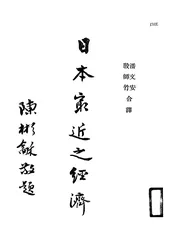 潘文安
殷師竹 合譯
日本最近之經濟
陳彬龢敬題